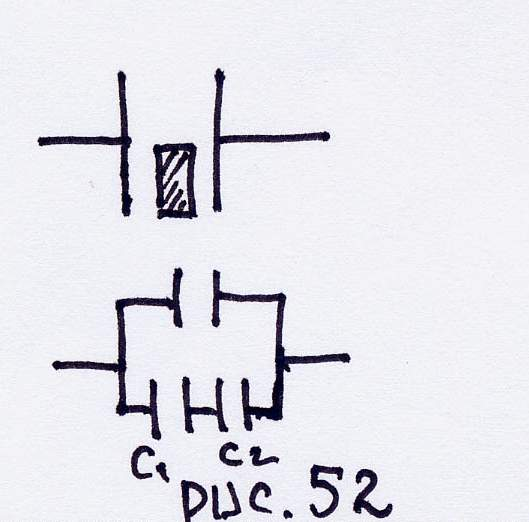 C₁ C₂
рис. 52